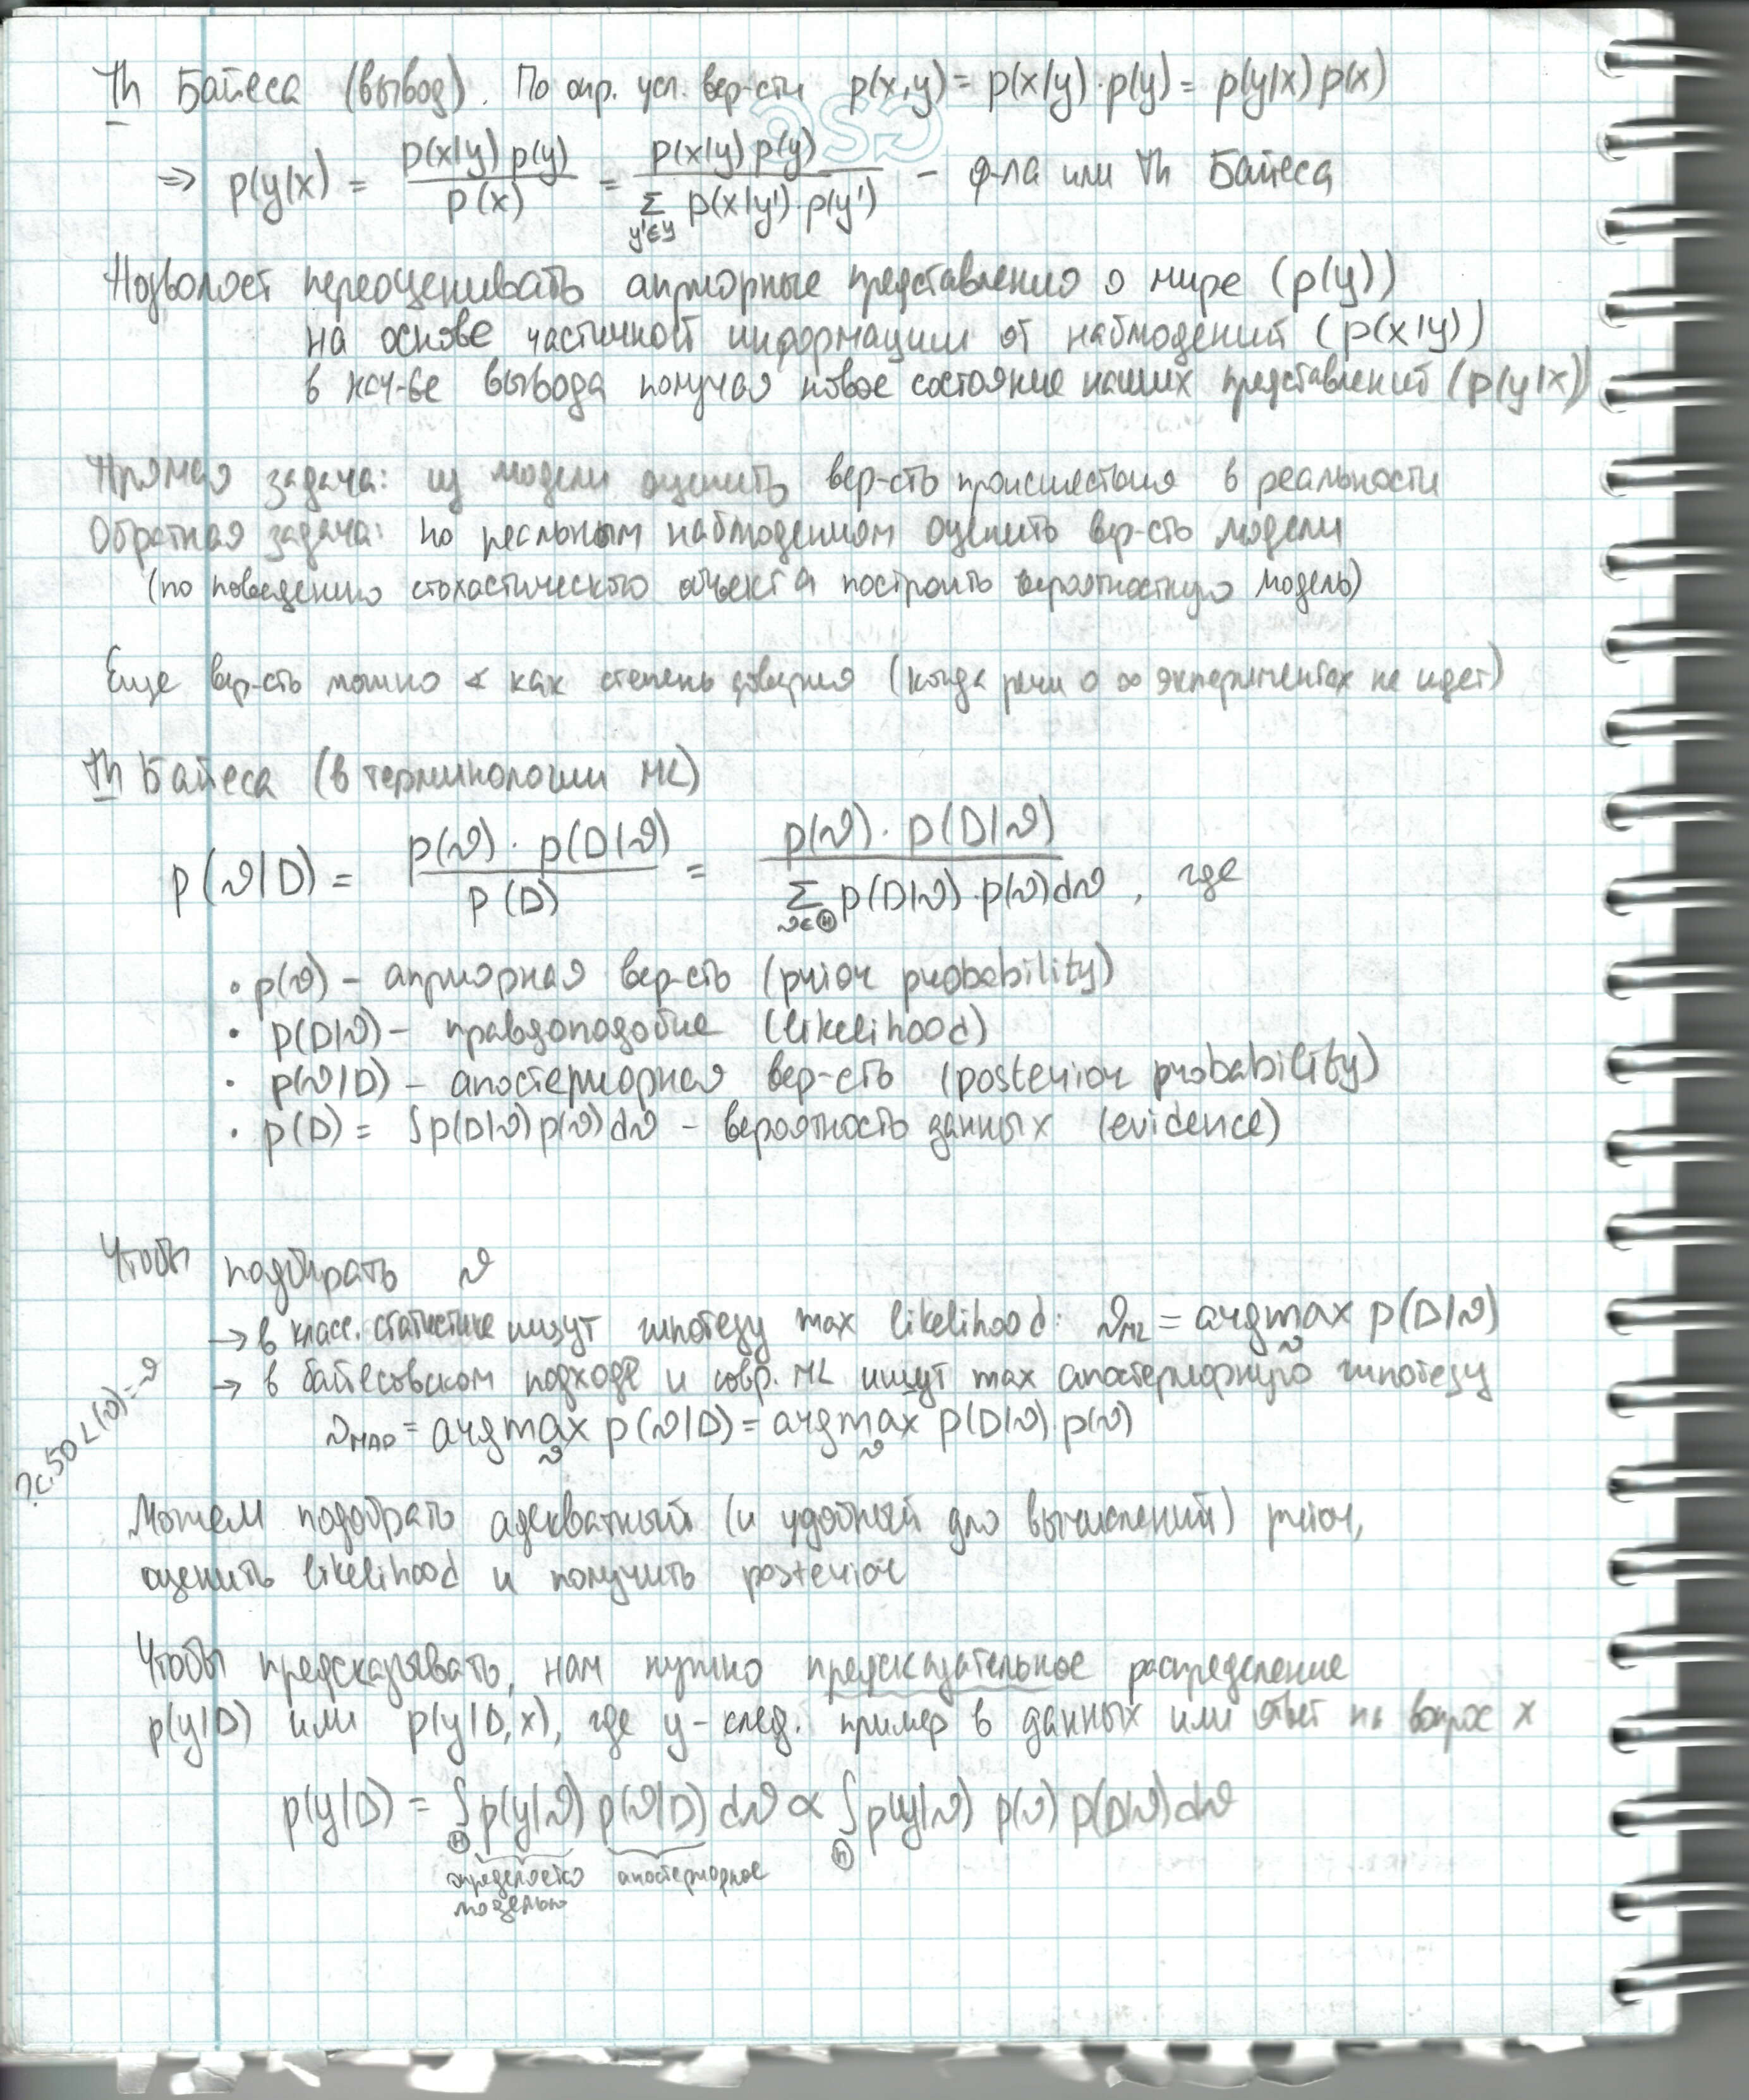 Th Байеса (вывод). По опр. усл. вер-сти p(x,y) = p(x|y)·p(y) = p(y|x)p(x)
⇒ p(y|x) = p(x|y)p(y) / p(x) = p(x|y)p(y) / Σ_{y'∈y} p(x|y')·p(y') – ф-ла или Th Байеса
Позволяет переоценивать априорные представления о мире (p(y))
на основе частичной информации от наблюдений (p(x|y))
в кач-ве вывода получая новое состояние наших представлений (p(y|x))
Прямая задача: из модели оценить вер-сть происшествия в реальности
Обратная задача: по реальным наблюдениям оценить вер-сть модели
(по поведению стохастического объекта построить вероятностную модель)
Еще вер-сть можно ∢ как степень доверия (когда речи о ∞ экспериментах не идет)
Th Байеса (в терминологии ML)
p(ϑ|D) = p(ϑ)·p(D|ϑ) / p(D) = p(ϑ)·p(D|ϑ) / Σ_{ϑ∈Θ} p(D|ϑ)·p(ϑ)dϑ, где
• p(ϑ) – априорная вер-сть (prior probability)
• p(D|ϑ) – правдоподобие (likelihood)
• p(ϑ|D) – апостериорная вер-сть (posterior probability)
• p(D) = ∫p(D|ϑ)p(ϑ)dϑ – вероятность данных (evidence)
Чтобы подбирать ϑ
→ в класс. статистике ищут гипотезу max likelihood: ϑ_ML = argmax_ϑ p(D|ϑ)
→ в байесовском подходе и совр. ML ищут max апостериорную гипотезу
ϑ_MAP = argmax_ϑ p(ϑ|D) = argmax_ϑ p(D|ϑ)·p(ϑ)
?с.50 L(ϑ)=-ϑ
Можем подобрать адекватный (и удобный для вычислений) prior,
оценить likelihood и получить posterior
Чтобы предсказывать, нам нужно предсказательное распределение
p(y|D) или p(y|D,x), где y – след. пример в данных или ответ на вопрос x
p(y|D) = ∫_Θ p(y|ϑ) p(ϑ|D) dϑ ∝ ∫_Θ p(y|ϑ) p(ϑ) p(D|ϑ)dϑ
определяется апостериорное
моделью